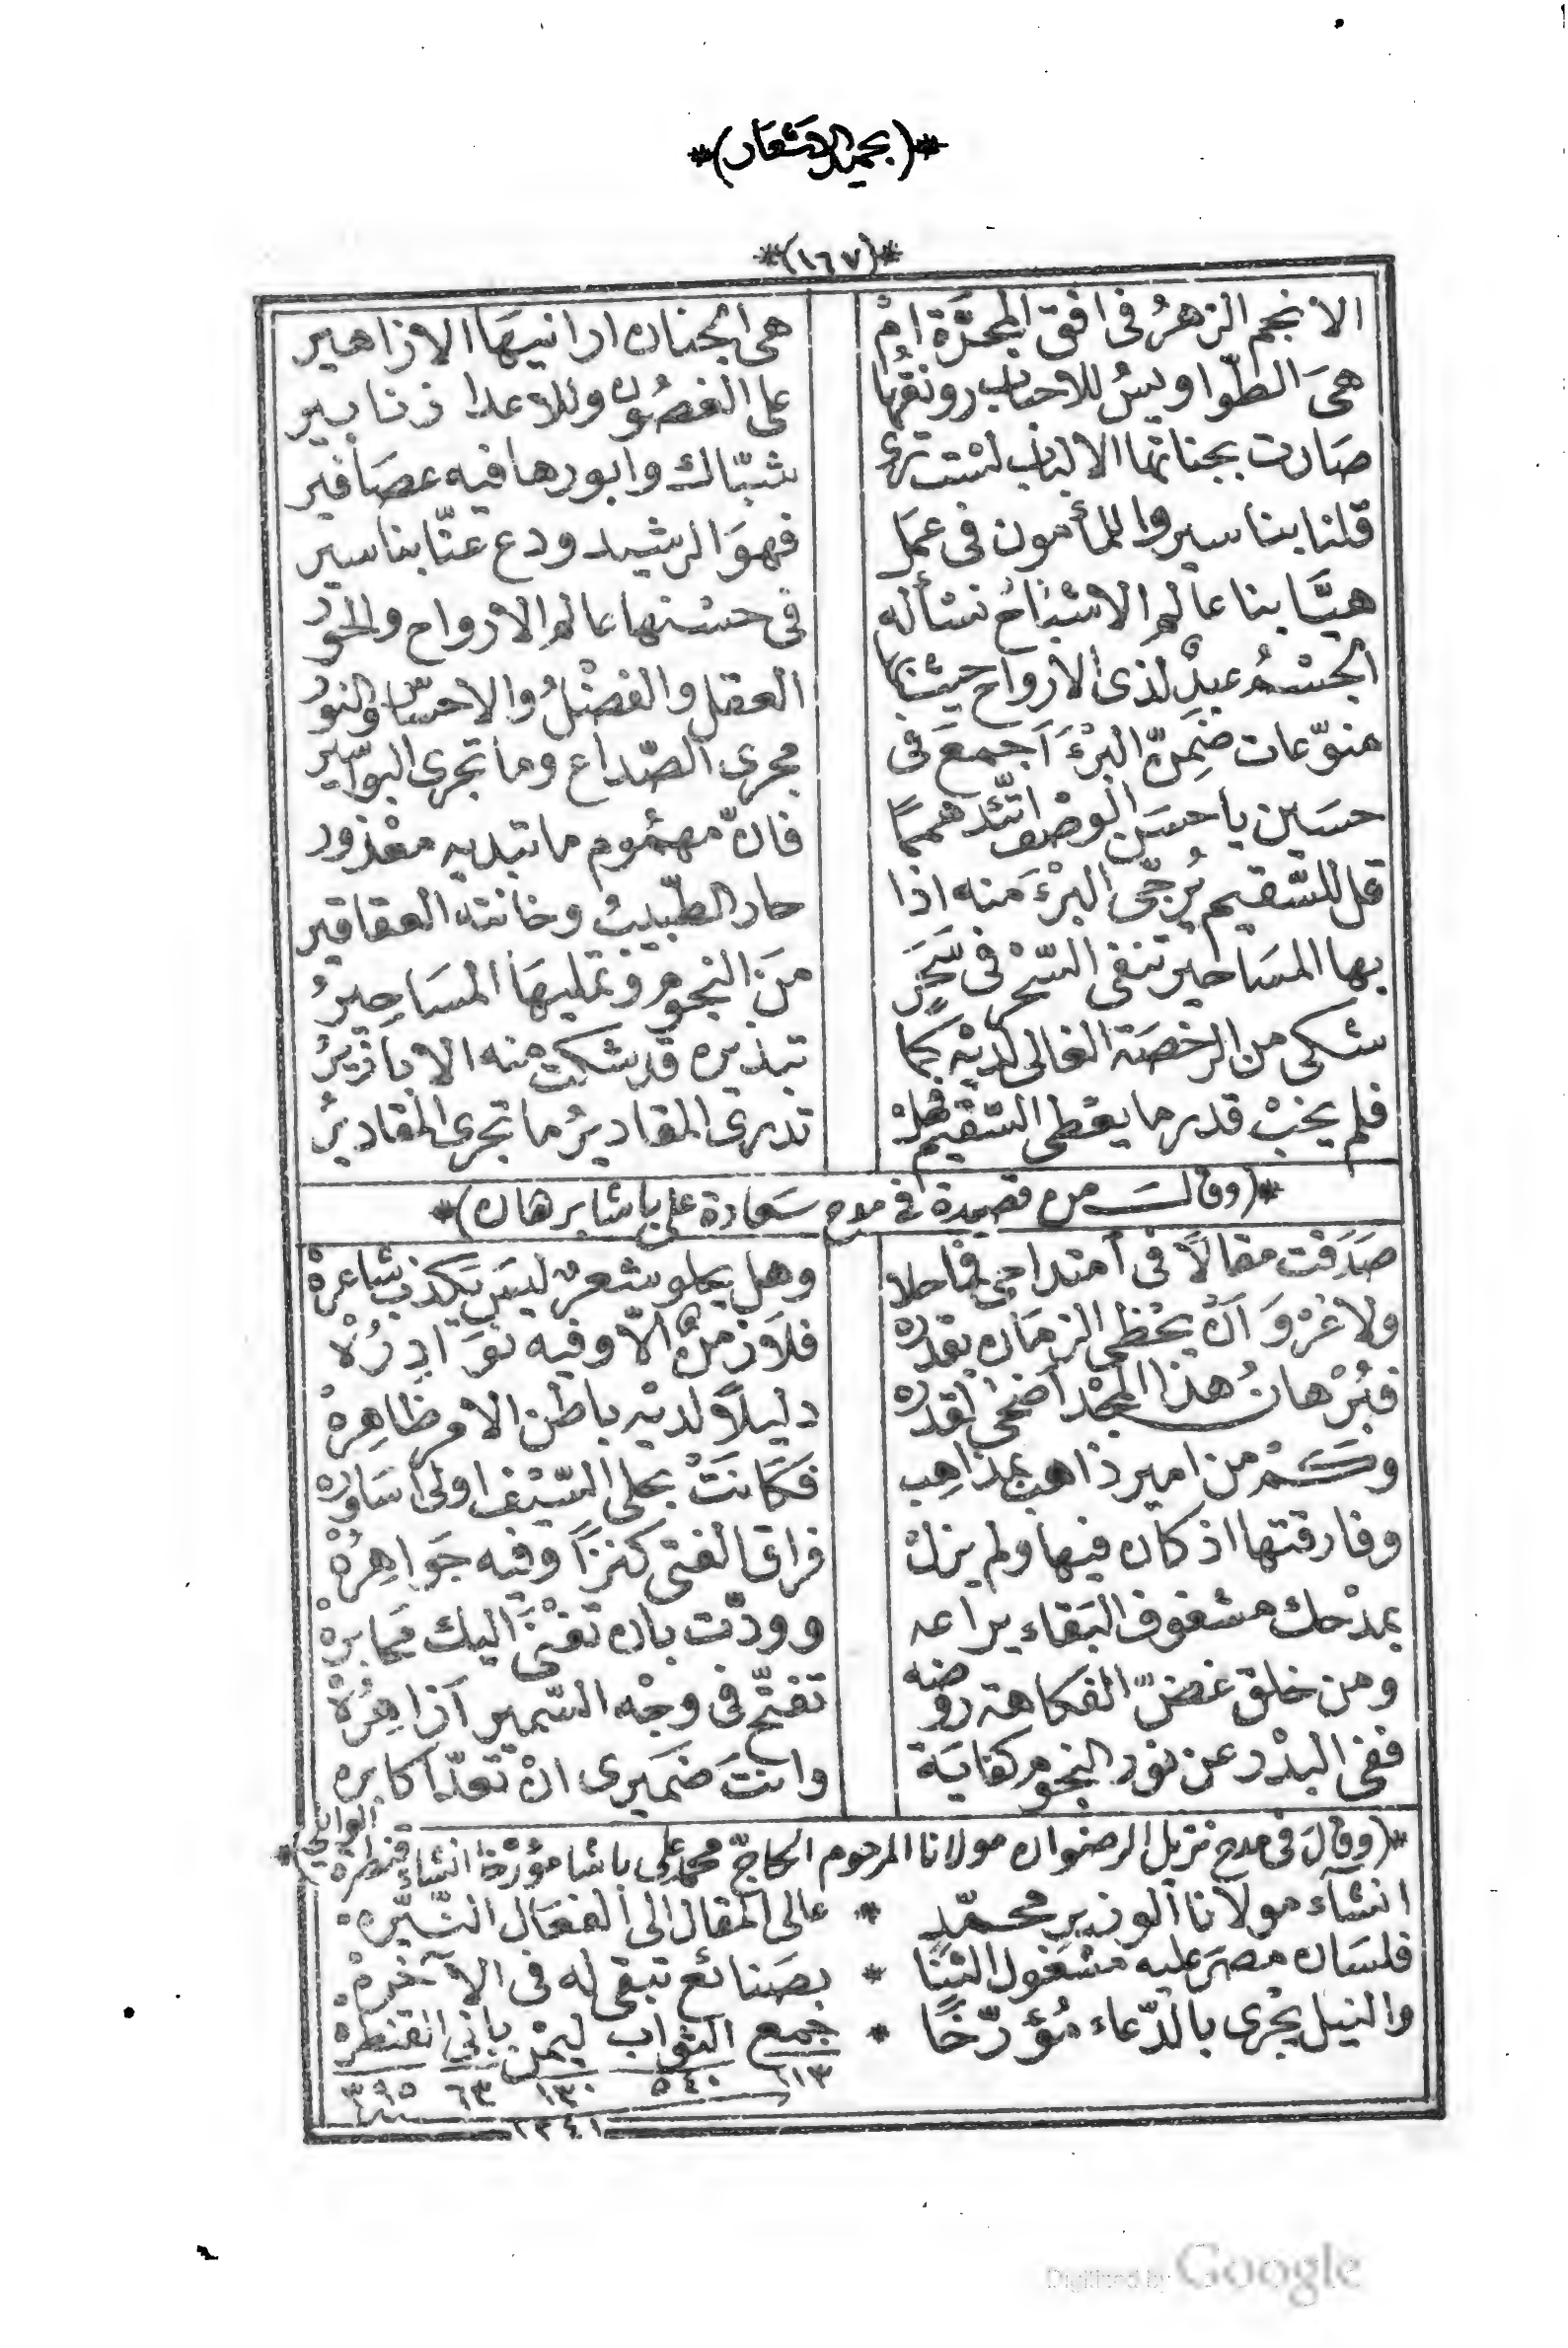 *( بحميد الاشعار )*
*(١٦٧)*
الانجم الزهرُ فى افق المجرَّة امْ هى الجنان ارانيهَا الازاهير
هىَ الطّواويسُ للاحباب رونقُها على الغصُون وللاعدا زنابير
صَارت بجناتها الالباب لست ترى شبّاك وابورها فيه عصَافير
قلنا بنا سيروا للمأمون فى عمَل فهوَ الرشيد ودع عنّا بنا سير
هيَّا بنا عالم الاشباح نسأله فى حسنها عالم الارواح والحور
الجسْمُ عبدٌ لذى الارواح حيث بها العقل والفضْلُ والاحسَان والنور
منوّعات ضمِنّ البرْءَ اَجمعَ فى مجرى الصّداع وما تجرى البواسير
حسَين يا حسَن الوصْف اتّئد همما فانّ مهمُوم ما تبديه معْذور
قل للسّقيم يُرجّى البرْءَ منه اذا حار الطّبيبُ وخانته العقاقير
بها المسَاحير تنفى السّحْر فى سَحَرٍ منَ النجوم وتمليهَا المسَاحيرُ
شكى من الرخصَة الغالى لديْه كما تبذيره قد شكت منه الاباذيرُ
فلم يخبْ قدر ما يعْطى السّقيم فهل تدرى المقاديرُ ما تجرى المقاديرُ
*( وقال من قصيدة فى مدح سَعادة على باشا برهان )*
صَدَقت مقالاً فى امتداحى فاحلا وهل يحلو شعرٌ ليسَ يكذب شاعرهْ
ولا غرْوَ اَنْ يحْظى الزمَان بقدره فلاَ زمنٌ الّا وفيه نوَادِرُهْ
فبُرْهانُ هذا المجْد اضحَى لقدره دليلاً لديْه باطن الامر ظاهِرهْ
وكمْ من امير ذاهب بمذاهِب فكَانَتْ بحلى السّيْف اولى اسَاوره
وفارقتها اذ كان فيها ولم يزلْ فراق الفتى كنزاً وفيه جَواهِرُهْ
بمدْحك مشغوف البَقاء يراعه وودّت بان تفْنَى اليك محَابره
ومن خلق غضّ الفكاهة روضه تفتّح فى وجْه السّمير اَزاهِرُهْ
ففى البدْر عن نور النجوم كفايَة وانتَ ضميرى انْ تعدّ اكابره
*( وقالَ فى مدح نزيل الرضوان مولانا المرحوم الحاجّ محمد على باشا مؤرّخًا انشاء قنطرة )*
انشآء مولانا الوزير محمّدٍ * عالى المقال الى الفعَال النّيّره
فلسَان مصرَ عليه مشغول الثنَا * بصَنائع تبقى له فى الآخرهْ
والنيل يجْرى بالدّعاء مُؤرّخًا * جمع الثواب ليمْن بانى القنطره
٦١٣ ٥٤٠ ١٣٠ ٦٣ ٣٩٥
١٢٤١
Digitized by Google